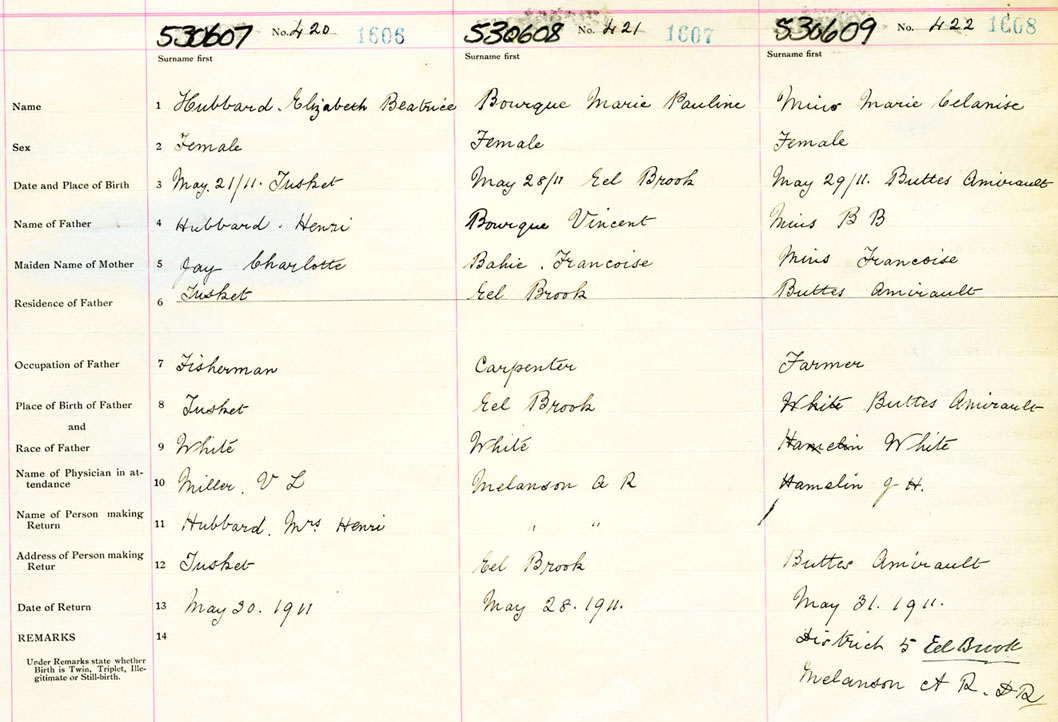 530607 No. 420 1606 530608 No. 421 1607 530609 No. 422 1608
Surname first Surname first Surname first
Name 1 Hubbard. Elizabeth Beatrice Bourque Marie Pauline Mius Marie Celanise
Sex 2 Female Female Female
Date and Place of Birth 3 May. 21/11. Tusket May 28/11 Eel Brook May 29/11. Buttes Amirault
Name of Father 4 Hubbard. Henri Bourque Vincent Mius B B
Maiden Name of Mother 5 Jay Charlotte Babie. Francoise Mius Francoise
Residence of Father 6 Tusket Eel Brook Buttes Amirault
Occupation of Father 7 Fisherman Carpenter Farmer
Place of Birth of Father 8 Tusket Eel Brook White Buttes Amirault
and
Race of Father 9 White White Hamelin White
Name of Physician in at-
tendance 10 Miller. V L Melanson A R Hamelin J H.
Name of Person making
Return 11 Hubbard. Mrs Henri " "
Address of Person making
Retur 12 Tusket Eel Brook Buttes Amirault
Date of Return 13 May 30. 1911 May 28. 1911. May 31. 1911.
REMARKS 14 District 5 Eel Brook
Under Remarks state whether
Birth is Twin, Triplet, Ille-
gitimate or Still-birth.
Melanson A R. D R